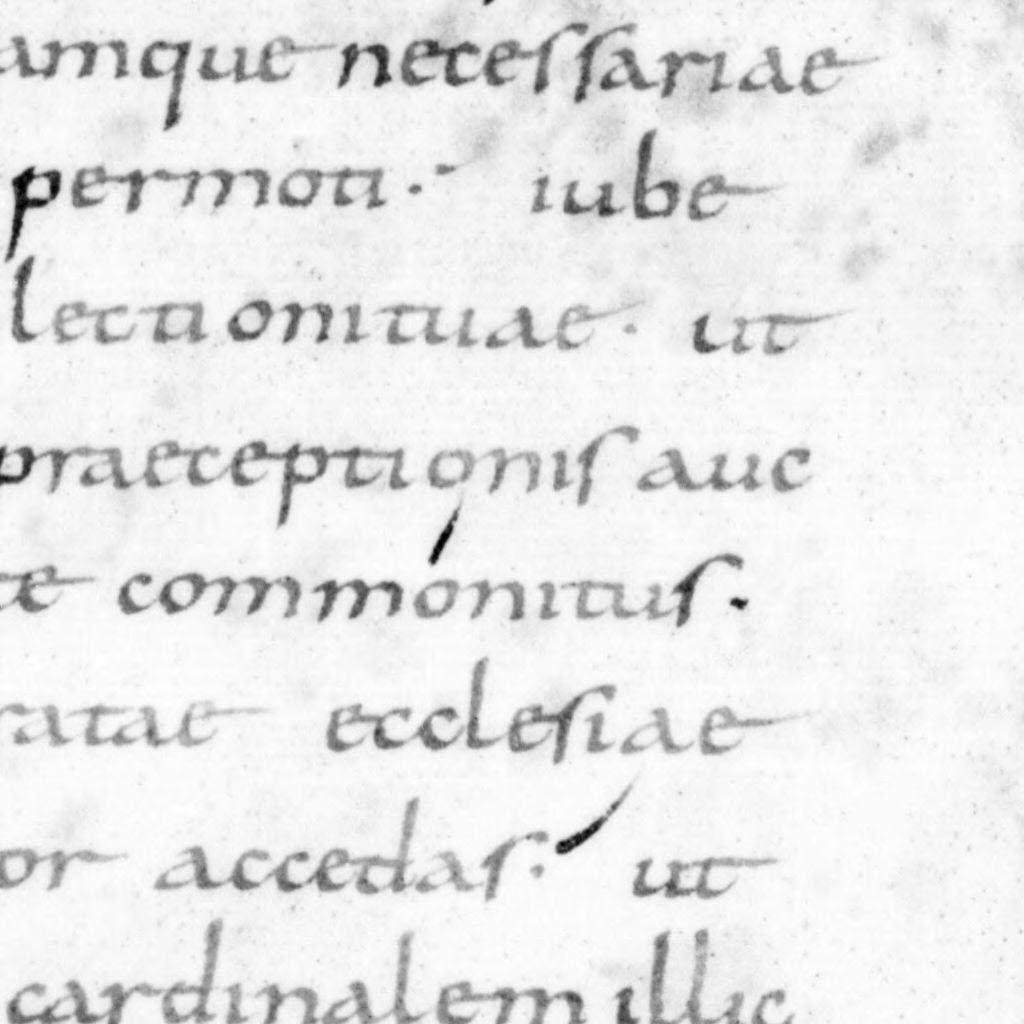 amque necessariae
permoti · iube
lectioni tuae · ut
praeceptionis auc
te commonitus.
ratae ecclesiae
or accedas · ut
cardinalem illic